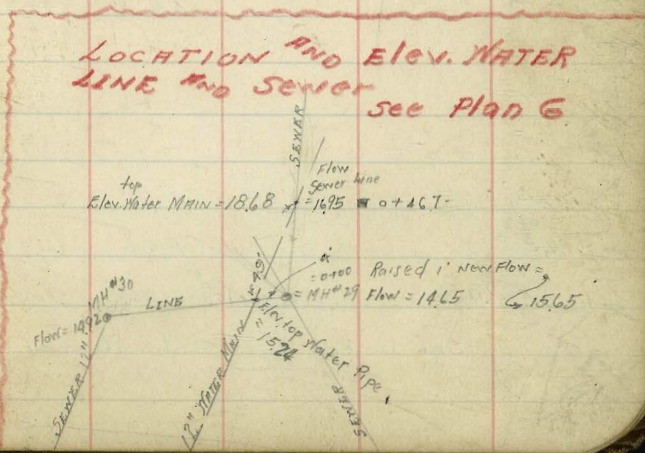 LOCATION AND Elev. WATER
LINE AND Sewer
see Plan G
SEWER
Flow
Sewer Line
= 16.95 0+46.7
top
Elev. Water MAIN = 18.68
Raised 1' new Flow =
15.65
= 0+00
= MH #29 Flow = 14.65
MH #30
LINE
Flow = 14.92
Elev. top Water Pipe
= 15.24
SEWER 12"
12" WATER MAIN
SEWER